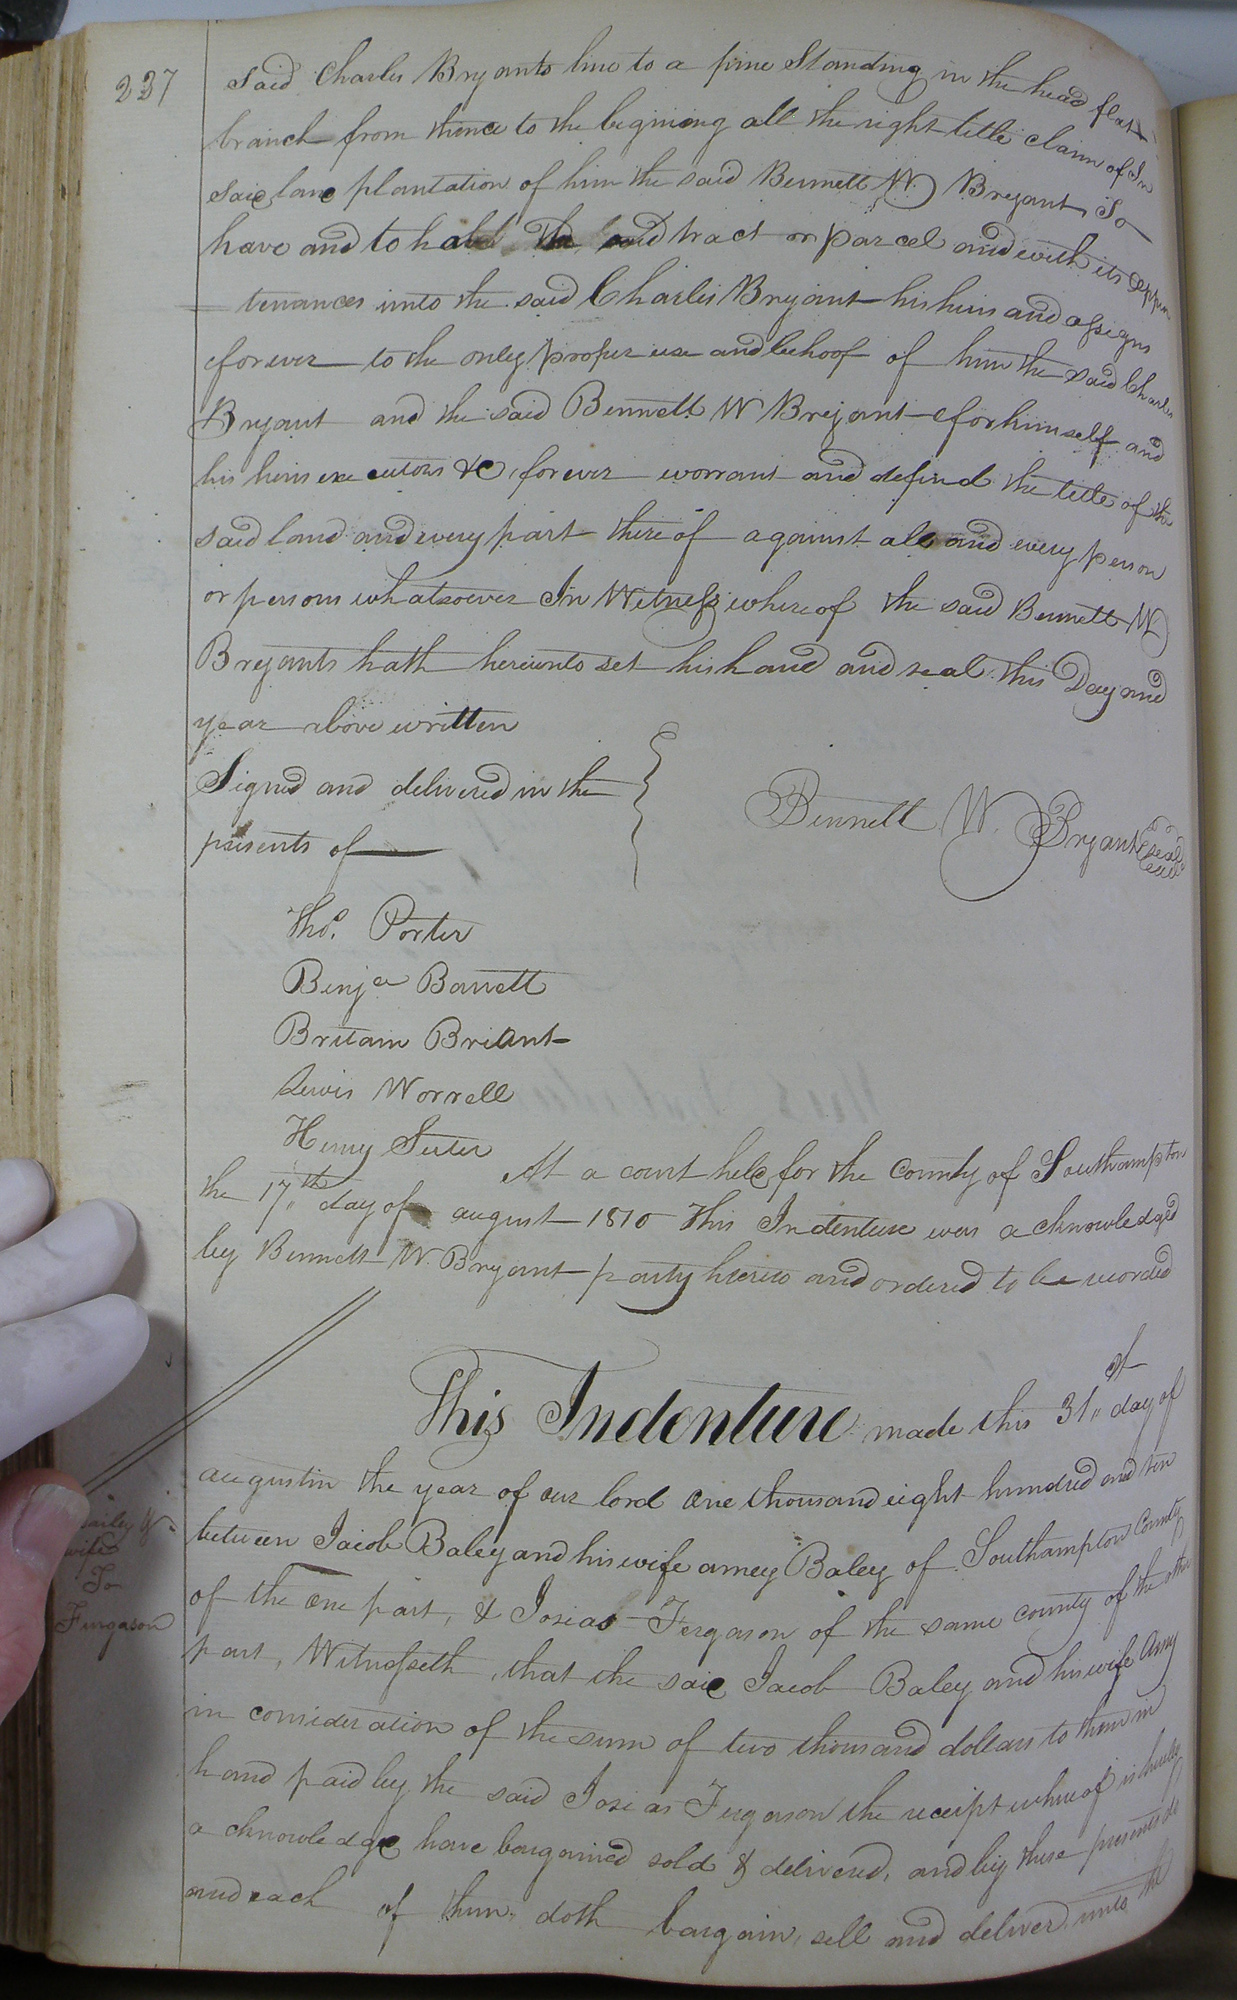 237
said Charles Bryants line to a pine Standing in the head flat
branch from thence to the begining all the right title claim of In
said land plantation of him the said Bennett W. Bryant, To
have and to hold the said tract or parcel and with its appur
=tenances unto the said Charles Bryant his heirs and assigns
forever to the only proper use and behoof of him the said Charles
Bryant and the said Bennett W Bryant for himself and
his heirs executors &c forever worrant and defend the title of the
said land and every part there of against all and every person
or persons whatsoever In Witness whereof the said Bennett W
Bryants hath hereunto set his hand and seal this Day and
year above written
Signed and delivered in the
presents of
Bennett W. Bryant Seal
Thos. Porter
Benja Barrett
Britain Briant
Lewis Worrell
Henry Suter
At a court held for the County of Southampton
the 17th day of august 1810 This Indenture was acknowledged
by Bennett W. Bryant party hereto and ordered to be recorded
This Indenture made this 31st day of
august in the year of our lord one thousand eight hundred and ten
between Jacob Baley and his wife amey Baley of Southampton County
of the one part, & Josias Fergason of the same county of the other
part, Witnesseth, that the said Jacob Baley and his wife Amy
in consideration of the sum of two thousand dollars to them in
hand paid by the said Josias Fergason the receipt whereof is hereby
acknowledge have bargained sold & delivered, and by these presents do
and each of them doth bargain, sell and deliver, unto the
Bailey &
wife
To
Fergason